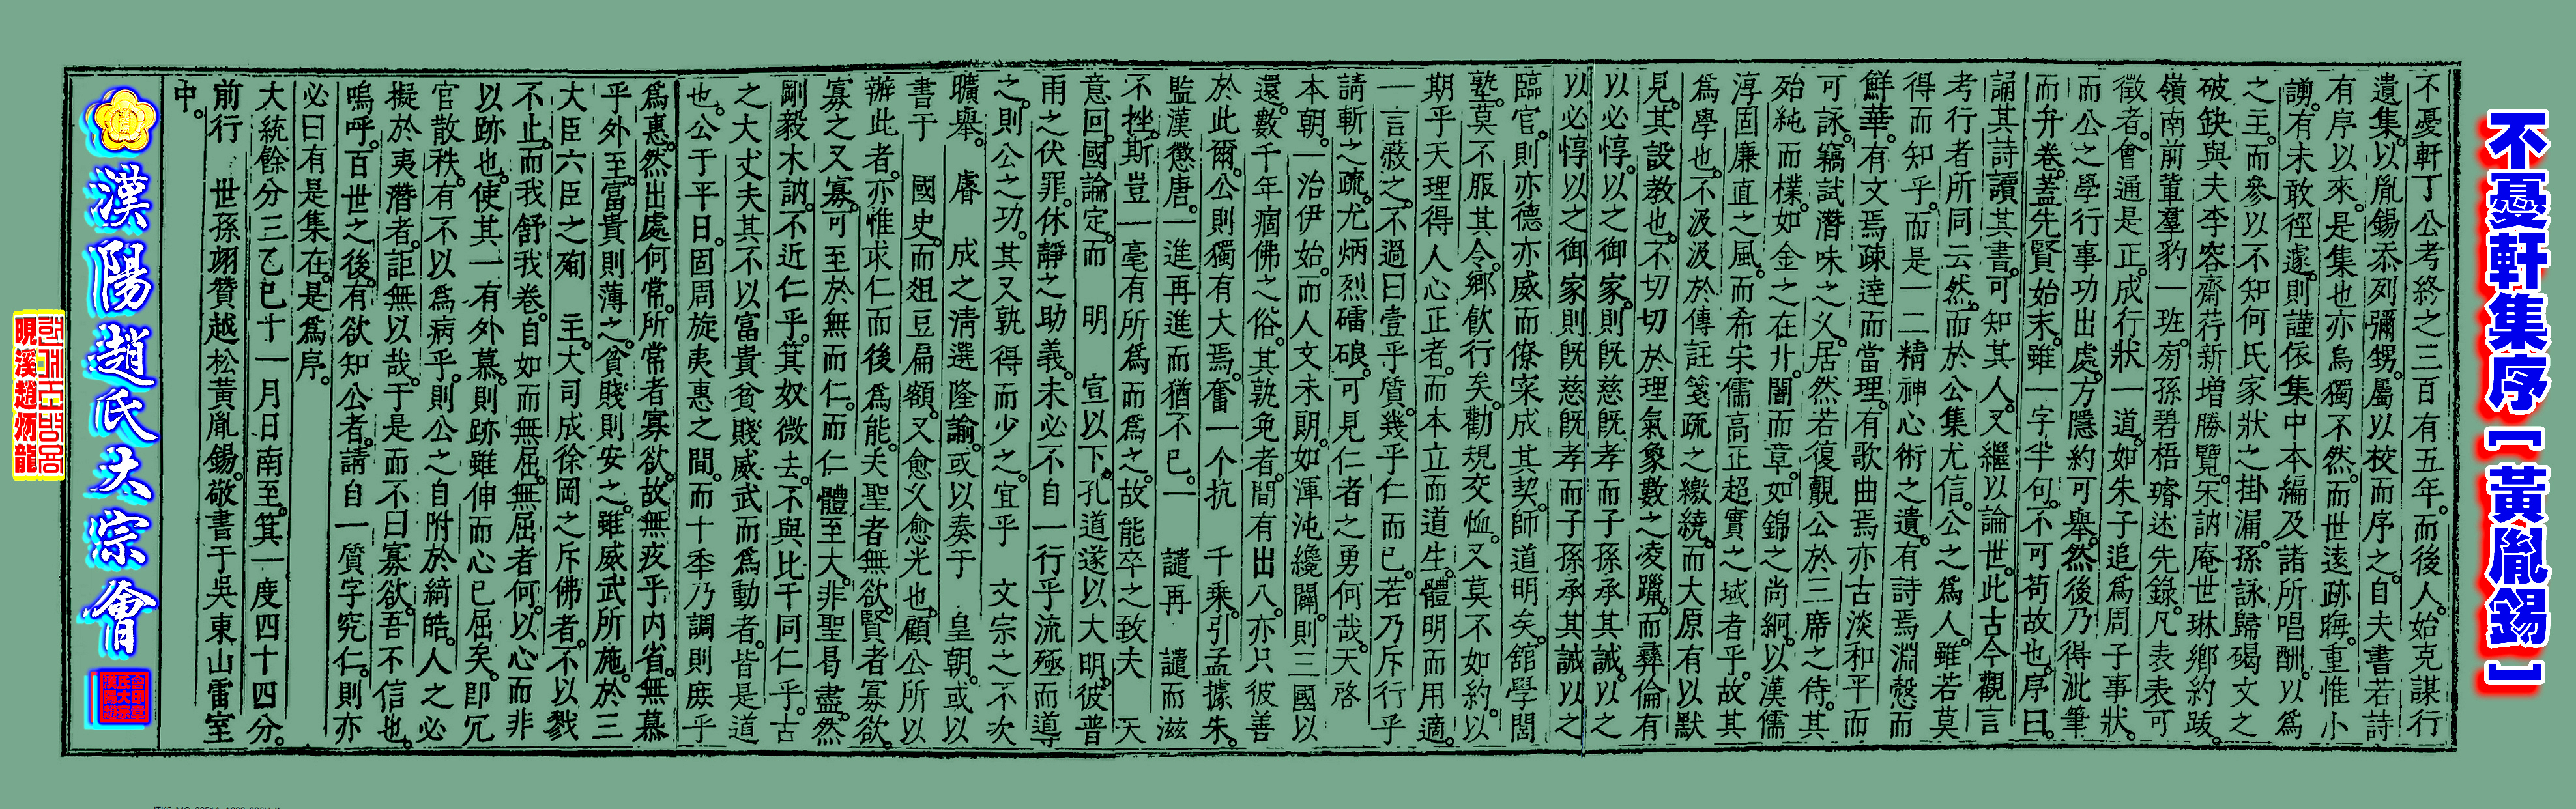 不憂軒集序【黃胤錫】
不憂軒丁公考終之三百有五年。而後人。始克謀行
遺集。以胤錫忝列彌甥。屬以校而序之。自夫書若詩
有序以來。是集也亦烏獨不然。而世遠跡晦。重惟小
謭。有未敢徑遽。則謹依集中本編及諸所唱酬。以爲
之主。而參以不知何氏家狀之掛漏。孫詠歸碣文之
破缺與夫李容齋荇新增勝覽。宋訥庵世琳鄕約跋。
嶺南前輩羣豹一班。旁孫碧梧瑨述先錄。凡表表可
徵者。會通是正。成行狀一道。如朱子追爲周子事狀。
而公之學行事功出處。方隱約可擧。然後乃得泚筆
而弁卷。蓋先賢始末。雖一字半句。不可苟故也。序曰。
誦其詩讀其書。可知其人。又繼以論世。此古今觀言
考行者所同云然。而於公集尤信。公之爲人。雖若莫
得而知乎。而是一二精神心術之遺。有詩焉淵慤而
鮮華。有文焉疎達而當理。有歌曲焉亦古淡和平而
可詠。竊試潛味之久。居然若復覿公於三席之侍。其
殆純而樸。如金之在卝。闇而章。如錦之尙絅。以漢儒
淳固廉直之風。而希宋儒高正超實之域者乎。故其
爲學也。不汲汲於傳註箋疏之繳繞。而大原有以默
見。其設敎也。不切切於理氣象數之凌躐。而彛倫有
以必惇。以之御家。則旣慈旣孝而子孫承其誠。以之
以必惇以之御家則旣慈旣孝而子孫承其誠以之
臨官。則亦德亦威而僚寀成其契。師道明矣。舘學閭
塾。莫不服其令。鄕飮行矣。勸規交恤。又莫不如約。以
期乎天理得人心正者。而本立而道生。體明而用適。
一言蔽之。不過曰壹乎質。幾乎仁而已。若乃斥行乎
請斬之疏。尤炳烈礌硠。可見仁者之勇何哉。天啓
本朝。一治伊始。而人文未朗。如渾沌纔闢。則三國以
還。數千年痼佛之俗。其孰免者。間有出入。亦只彼善
於此爾。公則獨有大焉。奮一个抗　千乘。引孟據朱。
監漢懲唐。一進再進而猶不已。一　譴再　譴而滋
不挫。斯豈一毫有所爲而爲之。故能卒之致夫　天
意回。國論定。而　明　宣以下。孔道遂以大明。彼普
雨之伏罪。休靜之助義。未必不自一行乎流殛而導
之。則公之功。其又孰得而少之。宜乎　文宗之不次
曠擧。　睿　成之淸選隆諭。或以奏于　皇朝。或以
書于　國史。而俎豆扁額。又愈久愈光也。顧公所以
辦此者。亦惟求仁而後爲能。夫聖者無欲。賢者寡欲。
寡之又寡。可至於無而仁。而仁體至大。非聖曷盡。然
剛毅木訥。不近仁乎。箕奴微去。不與比干同仁乎。古
之大丈夫其不以富貴貧賤威武而爲動者。皆是道
也。公于平日。固周旋夷惠之間。而十季乃調則庶乎
爲惠。然出處何常。所常者寡欲。故無疚乎內省。無慕
乎外至。富貴則薄之。貧賤則安之。雖威武所施。於三
大臣六臣之殉　主。大司成徐岡之斥佛者。不以戮
不止。而我舒我卷。自如而無屈。無屈者何。以心而非
以跡也。使其一有外慕。則跡雖伸而心已屈矣。卽冗
官散秩。有不以爲病乎。則公之自附於綺皓。人之必
擬於夷潛者。詎無以哉。于是而不曰寡欲。吾不信也。
嗚呼。百世之後。有欲知公者。請自一質字究仁。則亦
必曰有是集在。是爲序。
大統餘分三乙巳十一月日南至。箕一度四十四分。
前行　世孫翊贊越松黃胤錫。敬書于吳東山雷室
中。
漢陽趙氏大宗會
晛溪趙炳龍